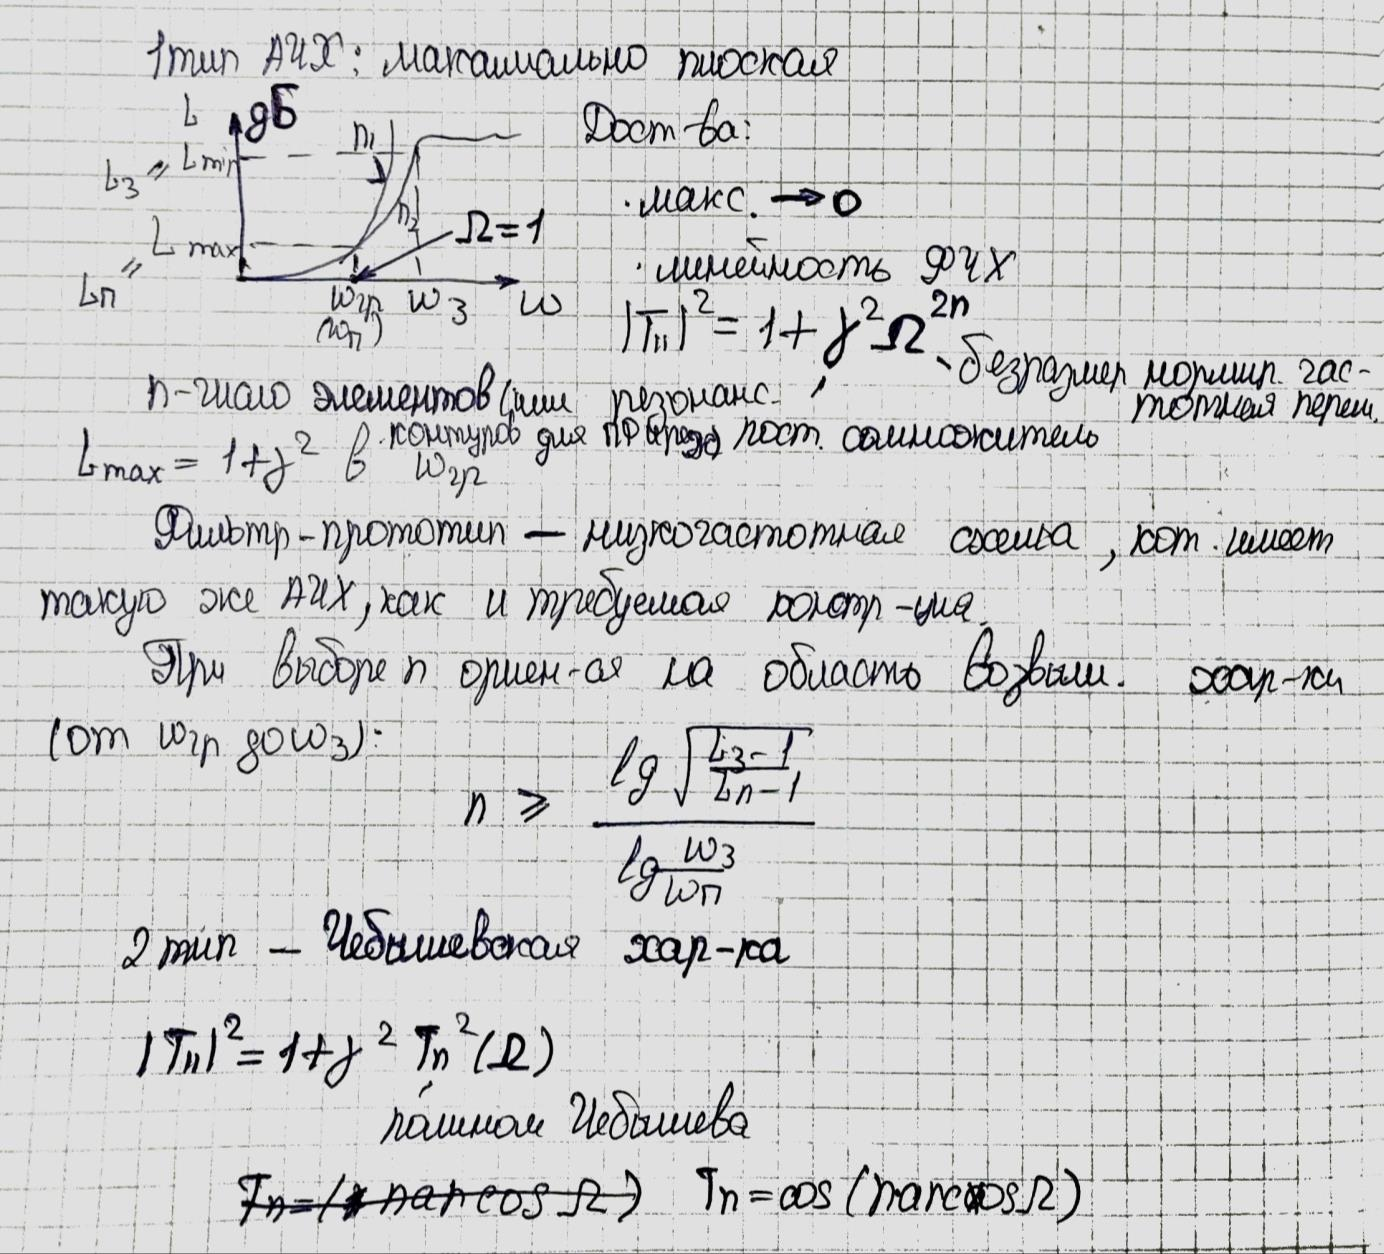 1 тип АЧХ: максимально плоская
L дБ
Lз = Lmin
Lп = Lmax
n₁
n₂
Ω=1
ωгр (ωп) ωз ω
Дост-ва:
· макс. → 0
· линейность ФЧХ
|T₁₁|² = 1+γ²Ω²ⁿ
безразмер нормир. час-
тотная перем.
n-число элементов (или резонанс.
контуров для ПФ и РФ) пост. сомножитель
Lmax = 1+γ² в ωгр
Фильтр-прототип — низкочастотная схема, кот. имеет
такую же АЧХ, как и требуемая констр-ция.
При выборе n ориен-ся на область возвыш. хар-ки
(от ωгр до ωз):
n ⩾ lg √((Lз-1)/(Lп-1)) / lg (ωз/ωп)
2 тип — Чебышевская хар-ка
|T₁₁|² = 1+γ² Tn²(Ω)
полином Чебышева
Tn = cos (n arccos Ω)